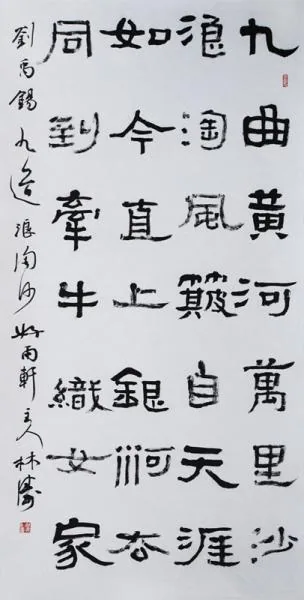 九曲黃河萬里沙
浪淘風簸自天涯
如今直上銀河去
同到牽牛織女家
劉禹錫 浪淘沙 好雨軒主人林濤